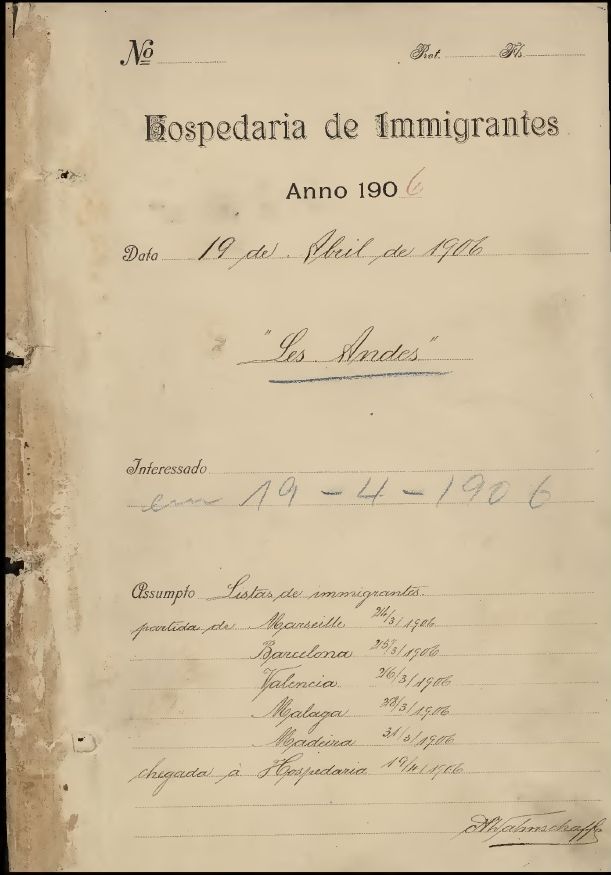 Nº Prot. Fls
Hospedaria de Immigrantes
Anno 1906
Data 19 de Abril de 1906
"Les Andes"
Interessado
em 19-4-1906
Assumpto Listas de immigrantes.
partida de Marseille 24/3/1906
Barcelona 25/3/1906
Valencia 26/3/1906
Malaga 28/3/1906
Madeira 31/3/1906
chegada à Hospedaria 19/4/1906